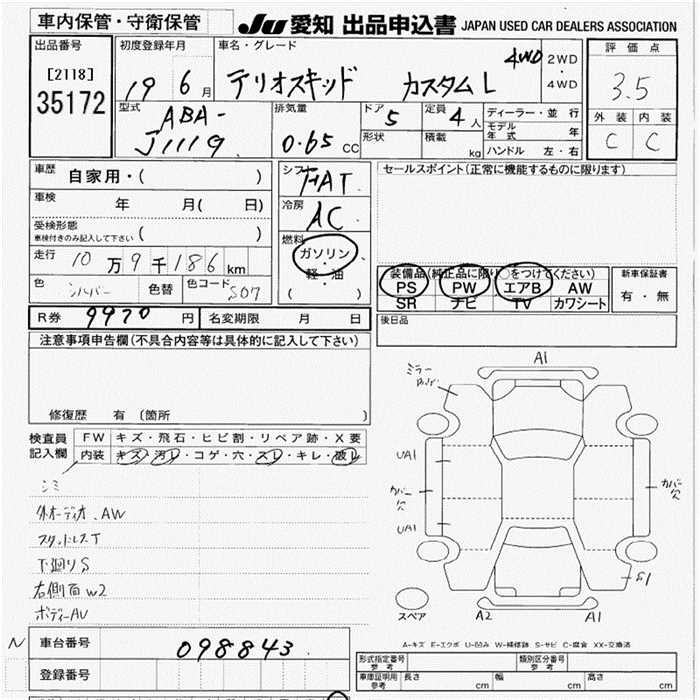 車内保管・守衛保管
JU 愛知 出品申込書 JAPAN USED CAR DEALERS ASSOCIATION
出品番号
[2118]
35172
初度登録年月
19 6 月
車名・グレード
テリオスキッド カスタムL
4WD
2WD
・
4WD
評価点
3.5
外装 内装
C C
型式
ABA-
J111G
排気量
0.65 cc
ドア
5
形状
定員
4 人
積載
kg
ディーラー・並行
モデル年式 年
ハンドル 左・右
車歴
自家用・( )
車検
年 月( 日)
受検形態
車検付きのみ記入して下さい ( )
走行 10 万 9 千 186 km
色 シルバー 色替 色コード S07
シフト
FAT
冷房
AC
燃料
ガソリン
・
軽・油
( )
セールスポイント(正常に機能するものに限ります)
装備品(純正品に限り○をつけてください)
PS PW エアB AW
SR ナビ TV カワシート
新車保証書
有・無
後日品
R券 9970 円 名変期限 月 日
注意事項申告欄(不具合内容等は具体的に記入して下さい)
修復歴 有 〔箇所 〕
検査員
記入欄
FW キズ・飛石・ヒビ割・リペア跡・X要
内装 キズ・汚レ・コゲ・穴・スレ・キレ・破レ
シミ
外オーディオ、AW
スタッドレスT
下廻りS
右側面W2
ボディーAU
A1
ミラー
UA1
カバー
欠
UA1
カバー
欠
S1
スペア
A2
A1
A-キズ E-エクボ U-凹み W-補修跡 S-サビ C-腐食 XX-交換済
N 車台番号 098843
登録番号
形式指定番号
参考
類別区分番号
参考
車庫証明用
参考
長さ cm
幅 cm
高さ cm